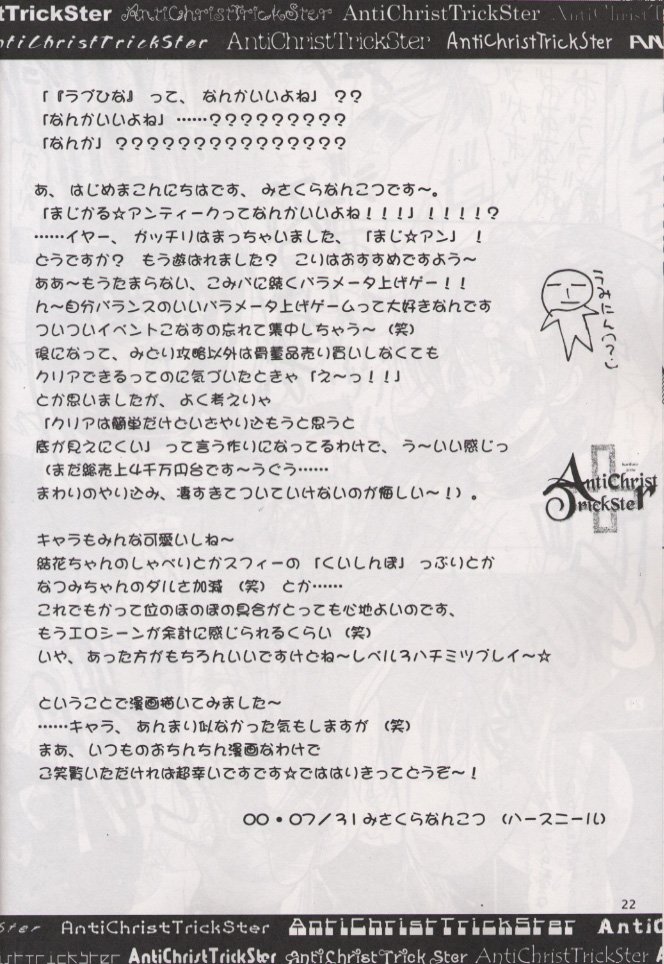 tTrickSter AntiChristTrickSter AntiChristTrickSter AntiChristTrickSt
ntiChristTrickSter AntiChristTrickSter AntiChristTrickSter AN
「『ラブひな』 って、 なんかいいよね」 ？？
「なんかいいよね」……？？？？？？？？？
「なんか」？？？？？？？？？？？？？？？
あ、 はじめまこんにちはです、 みさくらなんこつです～。
「まじかる☆アンティークってなんかいいよね！！！」！！！！？
……イヤー、 ガッチリはまっちゃいました、 「まじ☆アン」 ！
どうですか？ もう遊ばれました？ こりはおすすめですよう～
ああ～もうたまらない、こみパに続くパラメータ上げゲー！！
ん～自分バランスのいいパラメータ上げゲームって大好きなんです
ついついイベントこなすの忘れて集中しちゃう～（笑）
後になって、みとり攻略以外は骨董品売り買いしなくても
クリアできるってのに気づいたときゃ「え～っ！！」
とか思いましたが、 よく考えりゃ
「クリアは簡単だけといさやり込もうと思うと
底が見えにくい」 って言う作りになってるわけで、 う～いい感じっ
（まだ総売上4千万円台です～うぐぅ……
まわりのやり込み、凄すきてついていけないのが悔しい～！）。
キャラもみんな可愛いしね～
結花ちゃんのしゃべりとかスフィーの「くいしんぼ」 っぷりとか
なつみちゃんのダルさ加減 （笑） とか……
これでもかって位のほのぼの具合がとっても心地よいのです、
もうエロシーンが余計に感じられるくらい（笑）
いや、あった方がもちろんいいですけどね～レベル3ハチミツプレイ～☆
ということで漫画描いてみました～
……キャラ、 あんまり似なかった気もしますが （笑）
まあ、 いつものおちんちん漫画なわけで
ご笑覧いただければ超幸いですです☆でははりきってどうぞ～！
00・07/31みさくらなんこつ （ハースニール）
うみにんっ？：）
AntiChrist
TrickSter
22
ster AntiChristTrickSter AntiChristTrickSter AntiC
stTrickster AntiChristTrickSter AntiChristTrickSter AntiChristTrickSter